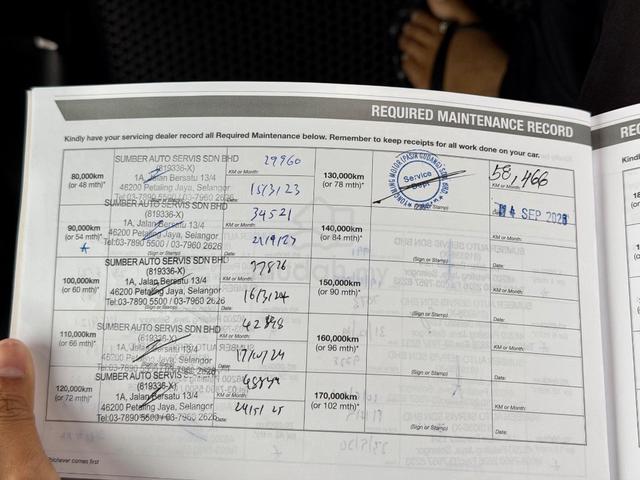 REQUIRED MAINTENANCE RECORD
Kindly have your servicing dealer record all Required Maintenance below. Remember to keep receipts for all work done on your car.
80,000km
(or 48 mth)*
SUMBER AUTO SERVIS SDN BHD
(819336-X)
1A, Jalan Bersatu 13/4
46200 Petaling Jaya, Selangor
Tel:03-7890 5500 / 03-7960 2626
29960
KM or Month:
15/3/23
90,000km
(or 54 mth)*
SUMBER AUTO SERVIS SDN BHD
(819336-X)
1A, Jalan Bersatu 13/4
46200 Petaling Jaya, Selangor
Tel:03-7890 5500 / 03-7960 2626
(Sign or Stamp)
34521
KM or Month:
21/9/23
Date:
100,000km
(or 60 mth)*
SUMBER AUTO SERVIS SDN BHD
(819336-X)
1A, Jalan Bersatu 13/4
46200 Petaling Jaya, Selangor
Tel:03-7890 5500 / 03-7960 2626
(Sign or Stamp)
KM or Month:
16/3/24
Date:
110,000km
(or 66 mth)*
SUMBER AUTO SERVIS SDN BHD
(819336-X)
1A, Jalan Bersatu 13/4
46200 Petaling Jaya, Selangor
KM or Month:
17/10/24
120,000km
(or 72 mth)*
SUMBER AUTO SERVIS SDN BHD
(819336-X)
1A, Jalan Bersatu 13/4
46200 Petaling Jaya, Selangor
Tel:03-7890 5500 / 03-7960 2626
KM or Month:
24/5/25
Date:
130,000km
(or 78 mth)*
Service
Dept
58,466
KM or Month:
SEP
140,000km
(or 84 mth)*
(Sign or Stamp)
KM or Month:
Date:
150,000km
(or 90 mth)*
(Sign or Stamp)
KM or Month:
Date:
160,000km
(or 96 mth)*
(Sign or Stamp)
KM or Month:
Date:
170,000km
(or 102 mth)*
(Sign or Stamp)
KM or Month:
Date:
whichever comes first